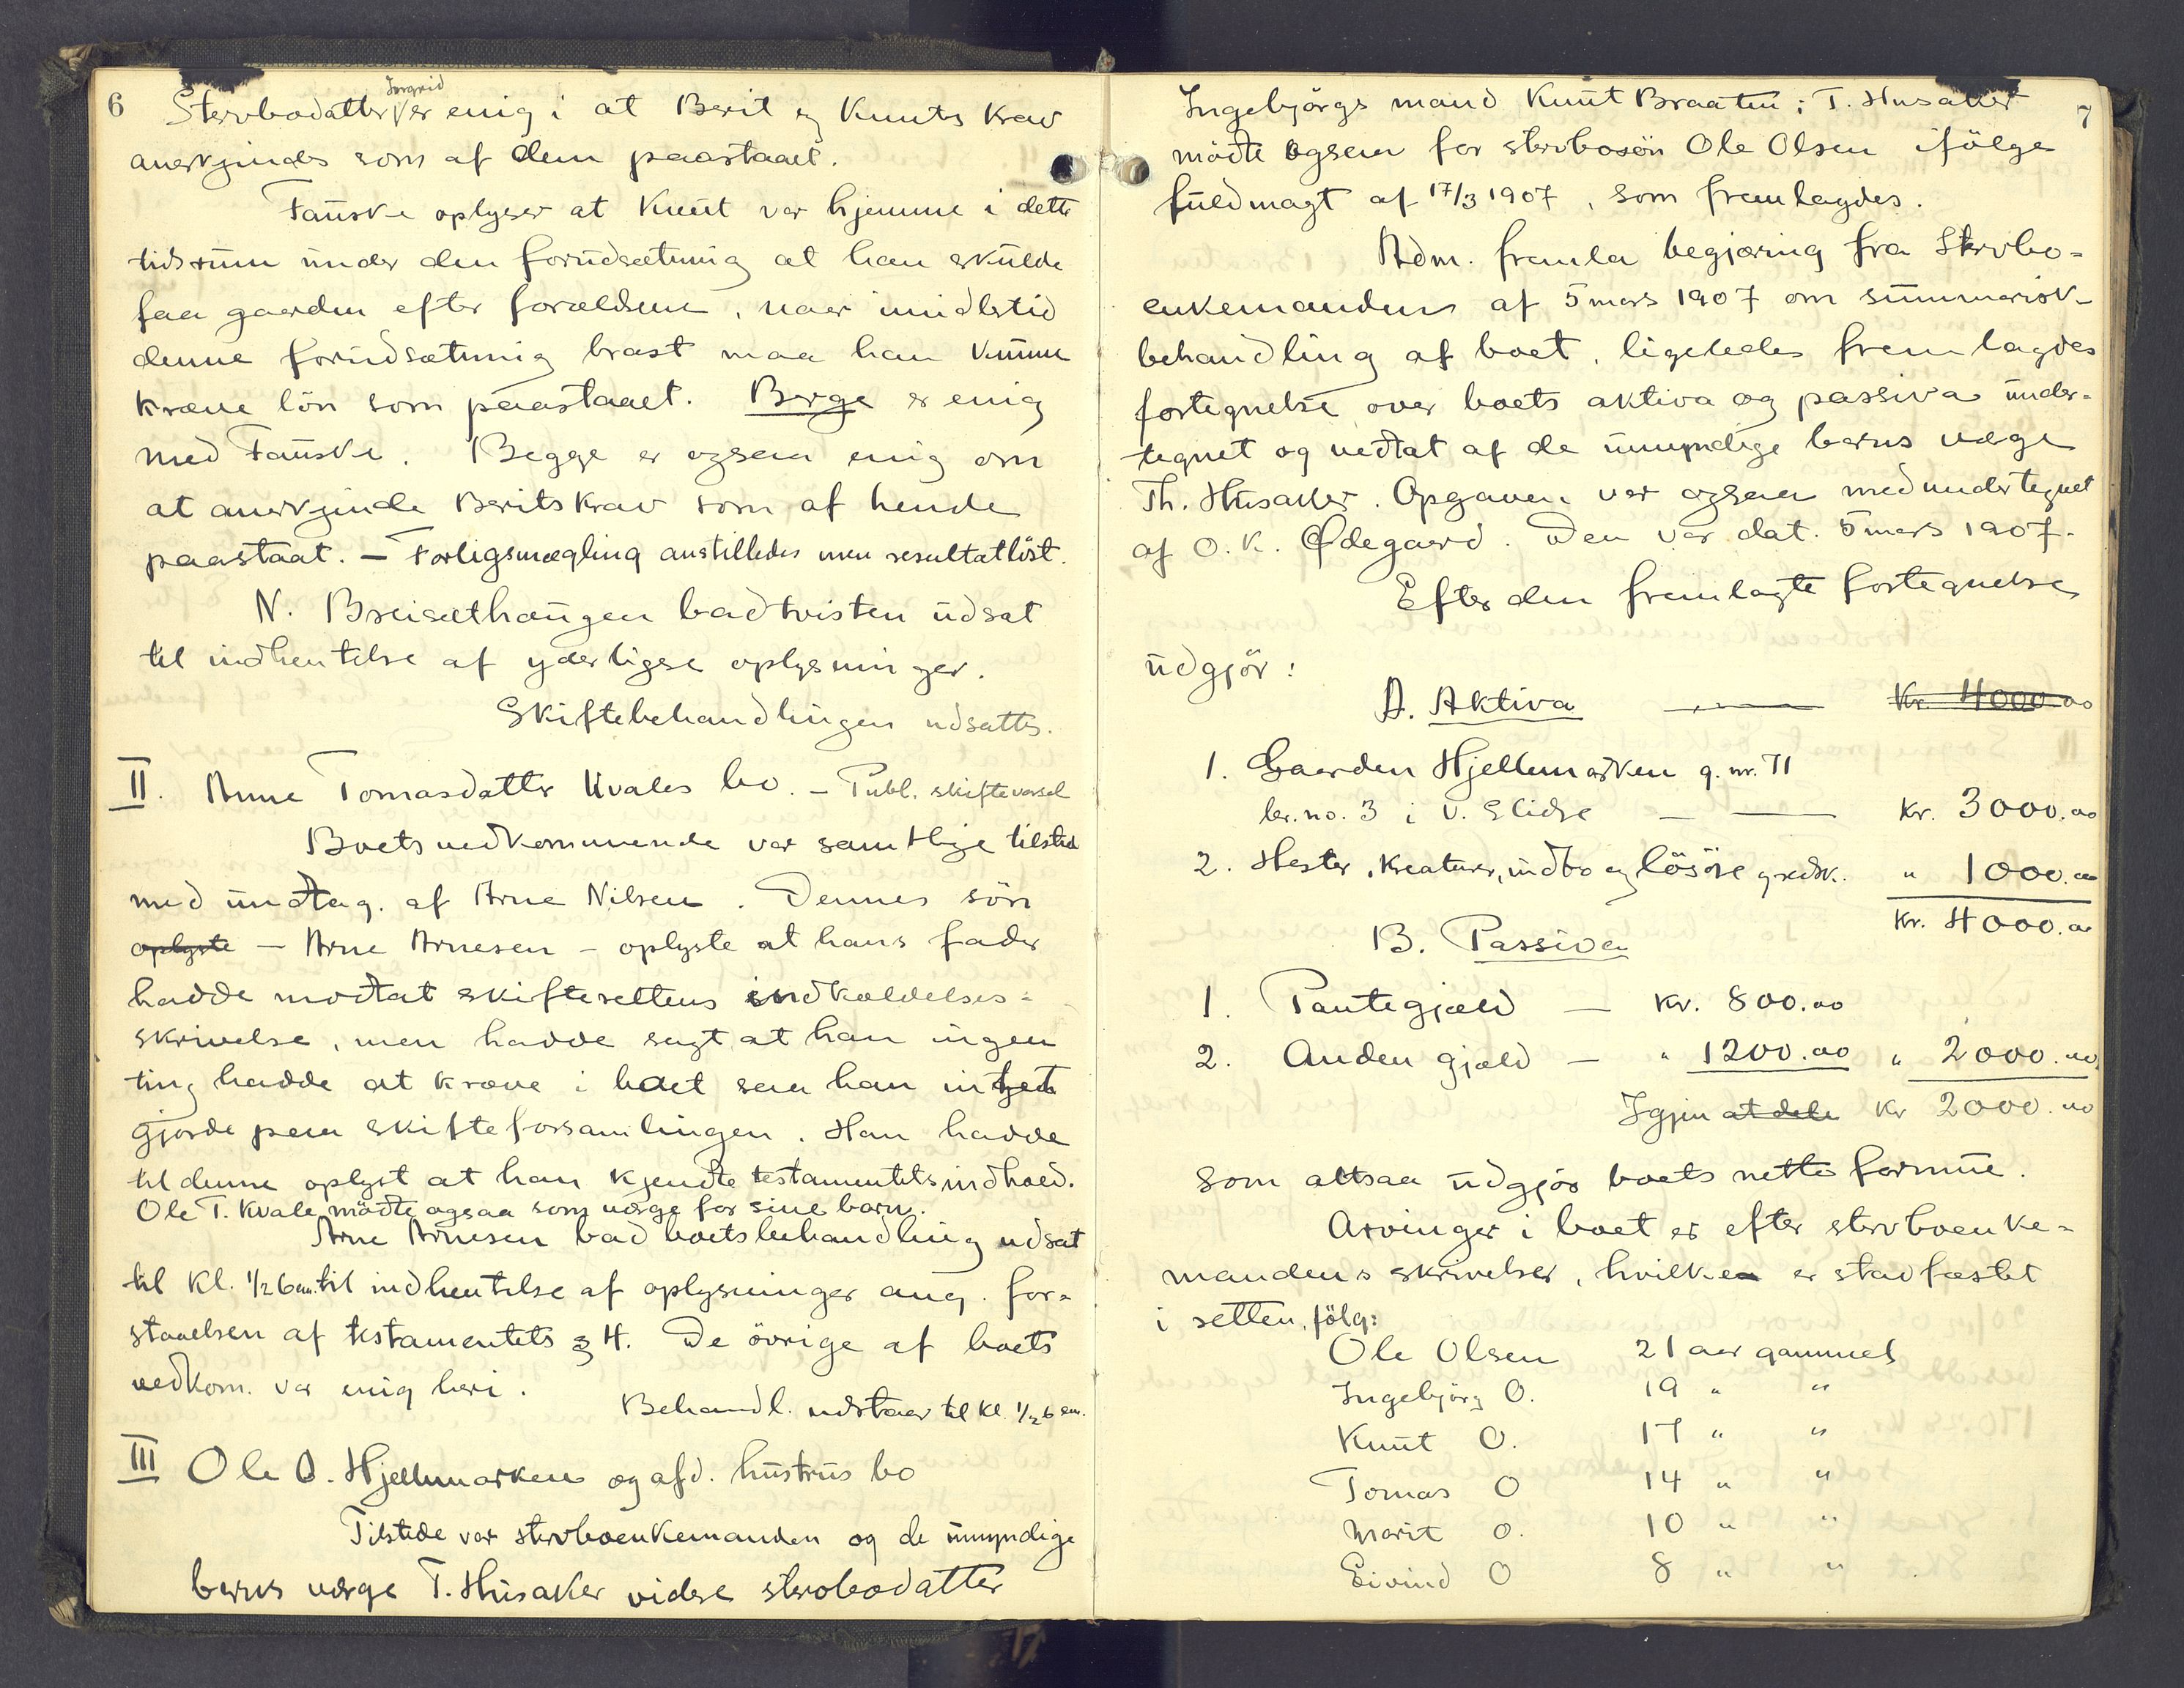 6
Stervbodatter Ingrid er enig i at Berit og Knuts krav
anerkjendes som af dem paastaaet.
Fauske oplyser at Knut var hjemme i dette
tidsrum under den forudsætning at han skulde
faa gaarden efter forældrene, naar imidlertid
denne forudsætning brast maa han kunne
kræve lön som paastaaet. Berge er enig
med Fauske. Begge er ogsaa enig om
at anerkjende Berits krav som af hende
paastaat. – Forligsmægling anstilledes men resultatlöst.
N. Breisæthaugen bad tvisten udsat
til indhentelse af yderligere oplysninger.
Skiftebehandlingen udsattes.
II. Anne Tomasdatter Kvales bo. – Publ. skiftevarsel
Boets vedkommende var samtlige tilstede
med undtag. af Arne Nilsen. Dennes sön
oplyste – Arne Arnesen – oplyste at hans fader
hadde modtat skifterettens indkaldelses=
skrivelse, men hadde sagt at han ingen
ting hadde at kræve i boet saa han intet
gjorde paa skifteforsamlingen. Han hadde
til denne oplyst at han kjendte testamentets indhold.
Ole T. Kvale mödte ogsaa som værge for sine barn.
Arne Arnesen bad boets behandling udsat
til kl. 1/2 6 em. til indhentelse af oplysninger ang. for=
staaelsen af testamentets § 4. De övrige af boets
vedkom. var enig heri.
Behandl. udstaar til kl. 1/2 6 em.
III Ole O. Hjellmarken og afd. hustrus bo
Tilstede var stervboenkemanden og de umyndige
barns værge T. Husaker videre stervbodatter
7
Ingebjörgs mand Knut Braaten; T. Husaker
mödte ogsaa for stervbosön Ole Olsen ifölge
fuldmagt af 17/3 1907, som fremlagdes.
Adm. fremla begjæring fra Stervbo=
enkemanden af 5 mars 1907 om summarisk
behandling af boet, ligeledes fremlagdes
fortegnelse over boets aktiva og passiva under=
tegnet og vedtat af de umyndige barns værge
Th. Husaker. Opgaven var ogsaa medundertegnet
af O. K. Ødegaard. Den var dat. 5 mars 1907.
Efter den fremlagte fortegnelse
udgjör:
A. Aktiva — Kr. 4000.00
1. Gaarden Hjellmarken g. nr. 71
br. no. 3 i V. Slidre — — Kr. 3000.00
2. Hester, kreaturer, indbo og lösöre gredsk. " 1000.00
Kr. 4000.00
B. Passiva
1. Pantegjæld — Kr. 800.00
2. Anden gjæld — " 1200.00 " 2000.00
Igjen at dele Kr 2000.00
som altsaa udgjör boets netto formue.
Arvinger i boet er efter stervboenke=
mandens skrivelse, hvilken er stadfæstet
i retten, fölg:
Ole Olsen 21 aar gammel
Ingebjörg O. 19 " "
Knut O. 17 " "
Tomas O 14 " "
Marit O. 10 " "
Eivind O 8 " "